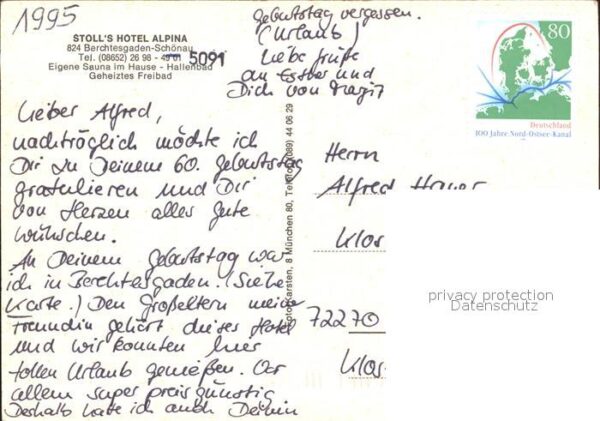 1995
STOLL'S HOTEL ALPINA
824 Berchtesgaden-Schönau
Tel. (08652) 26 98 - 5091
Eigene Sauna im Hause - Hallenbad
Geheiztes Freibad
Lieber Alfred,
nachträglich möchte ich
Dir zu Deinem 60. Geburtstag
gratulieren und Dir
von Herzen alles Gute
wünschen.
An Deinem Geburtstag war
ich in Berchtesgaden. (Siehe
Karte.) Den Großeltern meiner
Freundin gehört dieses Hotel
und wir konnten hier
tollen Urlaub genießen. Vor
allem super preisgünstig
Deshalb habe ich auch Deinen
Geburtstag vergessen.
(Urlaub)
Liebe Grüße
an Esther und
Dich von Margit
Foto-Karsten, 8 München 80, Telefon (089) 44 06 29
80
Deutschland
100 Jahre Nord-Ostsee-Kanal
Herrn
Alfred
Klos
72270
Klos
privacy protection
Datenschutz